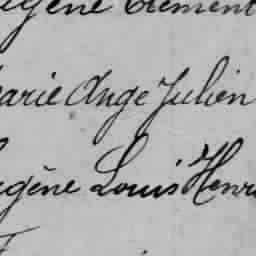 ugène Clément
arie Ange Julien
ugène Louis Henri